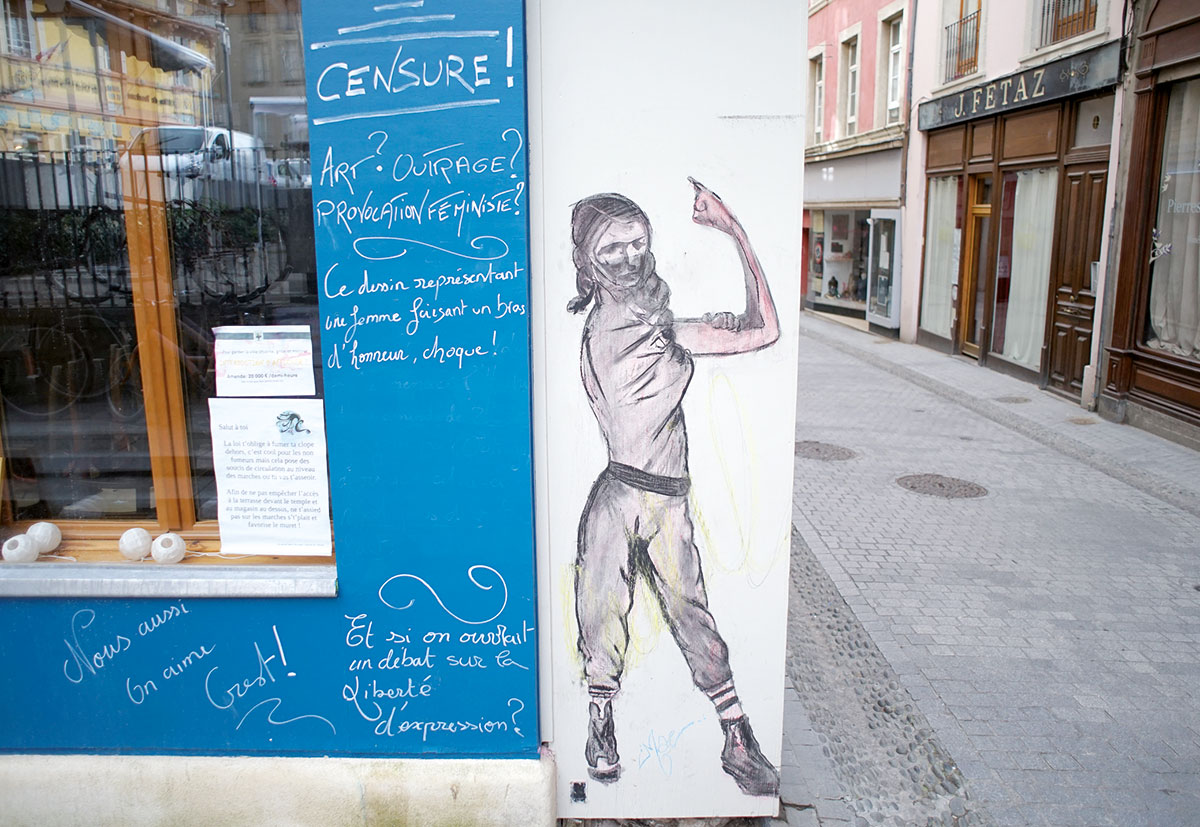 CENSURE!
ART? OUTRAGE?
PROVOCATION FÉMINISTE?
Ce dessin représentant
une femme faisant un bras
d'honneur, choque!
Et si on ouvrait
un débat sur la
Liberté
d'expression?
Nous aussi
on aime
Crest!
Amende: 20 000 €
Salut à toi
La loi t'oblige à fumer ta clope
dehors, c'est cool pour les non
fumeurs mais cela pose des
soucis de circulation au niveau
des marches ou tu vas t'asseoir.
Afin de ne pas empêcher l'accès
à la terrasse devant le temple et
au magasin au dessus, ne t'assied
pas sur les marches s't'plait et
favorise le muret !
J. FETAZ
Pierres